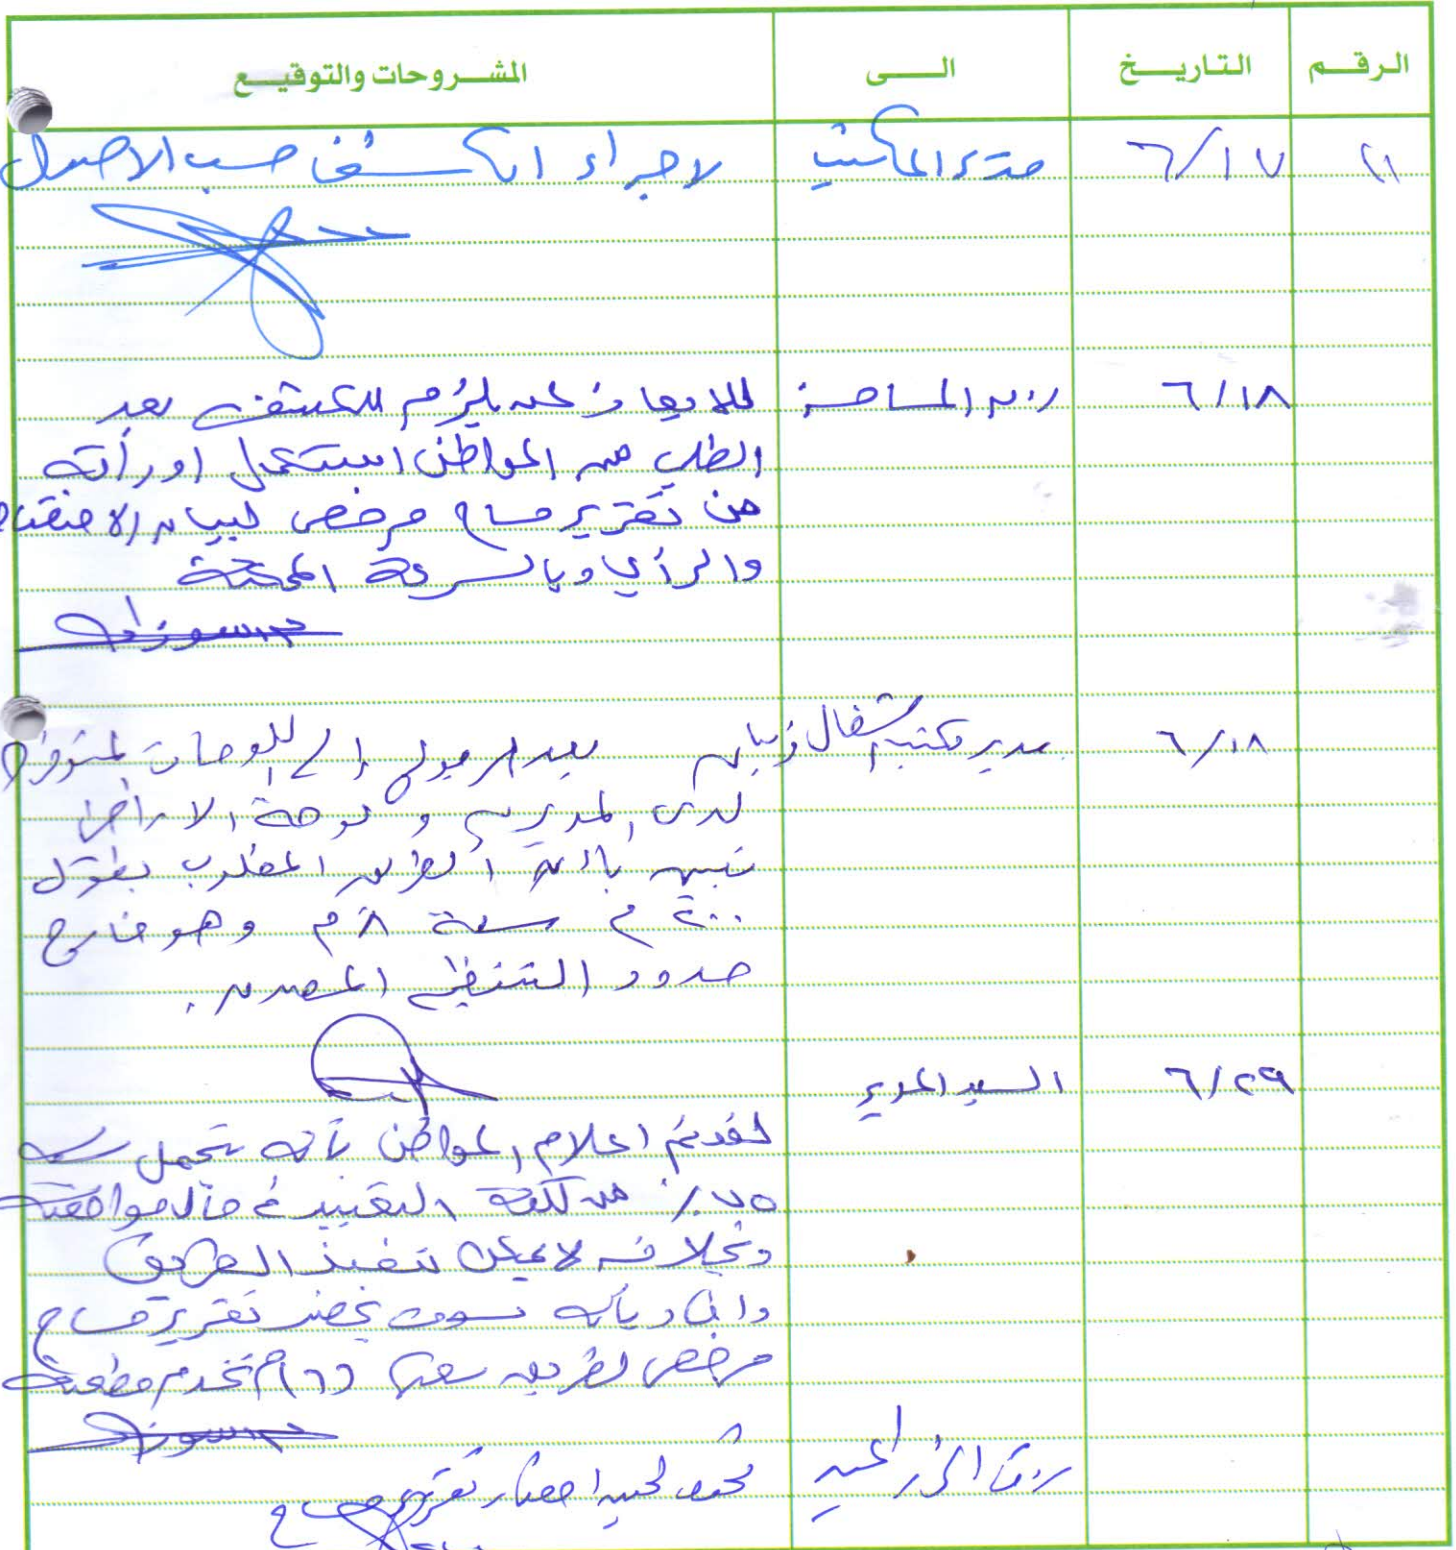 الرقم التاريخ الى المشروحات والتوقيع
١١ ٦/١٧ لاجراء الكشف حسب الاصول
٦/١٨ للايعاز لمن يلزم للكشف بعد
الطلب من المواطن استكمال اوراقه
من تقرير مساح مرخص لبيان
والرأي وبالسرعة الممكنة
٦/١٨ مدير مكتب اشغال ذيبان بعد الرجوع الى اللوحات المتوفرة
لدى المديرية ولوحة الاراضي
تبين بان الطريق المطلوب بطول
٢٠٠ م سعة ٨ م وهو خارج
حدود التنظيم
٦/٢٩ السيد المدير
لقد تم اعلام المواطن بأنه يتحمل
٧٥٪ من كلفة التعبيد في حال موافقته
وبخلافه لا يمكن تنفيذ الطريق
وافاد بأنه سوف يحضر تقرير مساح
مرخص لطريق سعة (٦) م تخدم قطعته
تقرير مساح